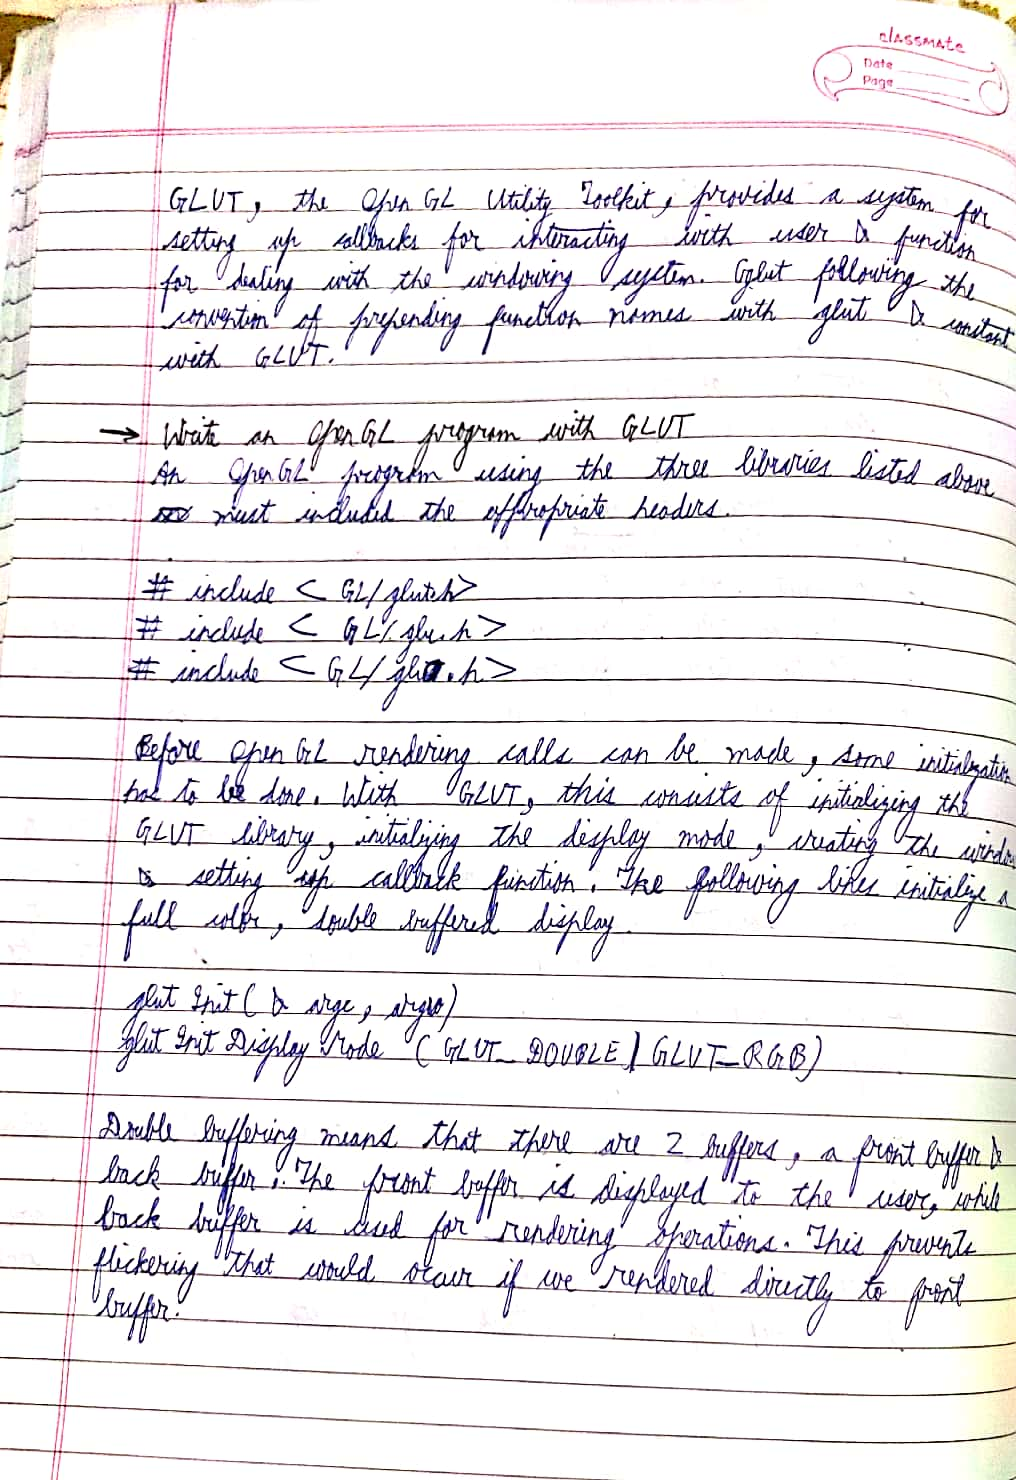 classmate
Date
Page
GLUT, the OpenGL Utility Toolkit, provides a system for
setting up callbacks for interacting with user & function
for dealing with the windowing system. Gglut following the
convention of prepending function names with glut & constant
with GLUT.
→ Write an OpenGL program with GLUT
An OpenGL program using the three libraries listed above
must included the appropriate headers.
# include < GL/glut.h>
# include < GL/glu.h >
# include < GL/ .h >
Before OpenGL rendering calls can be made, some initialization
has to be done. With GLUT, this consists of initializing the
GLUT library, initializing the display mode, creating the window
& setting up callback function. The following lines initialize a
full color, double buffered display.
glut Init ( & argc, argv)
glut Init Display Mode ( GLUT_DOUBLE | GLUT_RGB)
Double buffering means that there are 2 buffers, a front buffer &
back buffer. The front buffer is displayed to the user, while
back buffer is used for rendering operations. This prevents
flickering that would occur if we rendered directly to front
buffer.